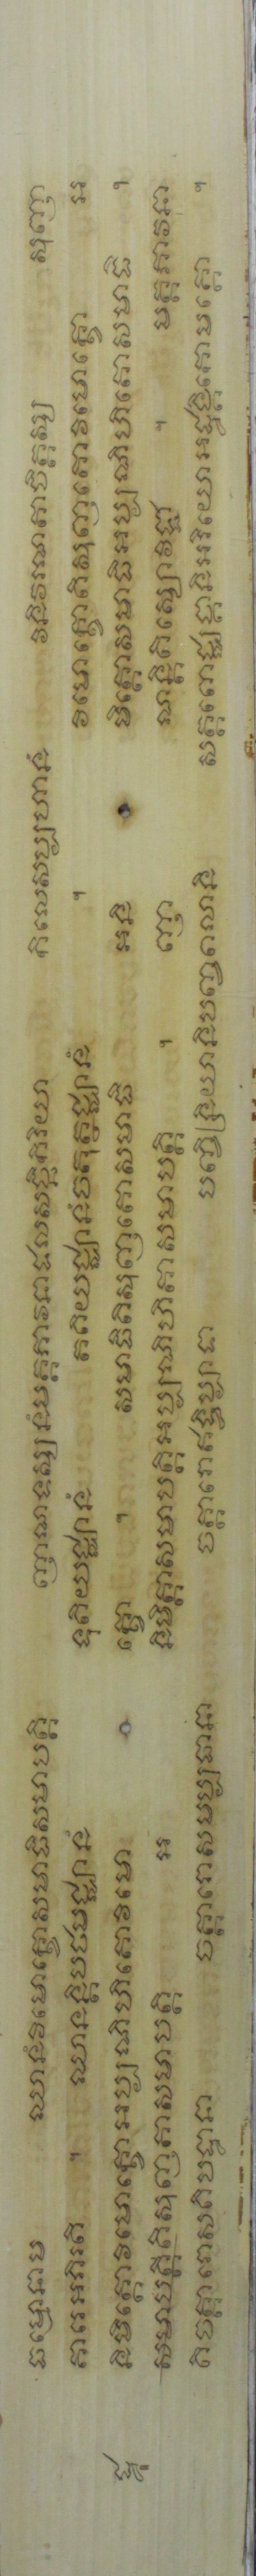 ធម្មោនាម ឈានំវិមោក្ខោសមាធិសមាបត្តិ ញាណទស្សនំមគ្គភាវនាផលសច្ឆិកិរិយា កិលេសប្បហានំ វិនីវរណតាចិត្តស្ស សុញា
គារេអភិរតិ ។ ឈានន្តិបឋមជ្ឈានំ ទុតិយជ្ឈានំ តតិយជ្ឈានំចតុត្ថជ្ឈានំ ។ វិមោក្ខោតិសុញតោវិមោក្ខោ អ
និមិត្តោវិមោក្ខោអប្បណិហិតោវិមោ ក្ខោ ។ សមាធីតិសុញតោសមាធិ អនិ មិត្តោសមាធិអប្បណិហិតោសមាធិ ។
សមាបត្តីតិសុញតាសមាបត្តិ អ និមិត្តាសមាបត្តិអប្បណិហិតាសមាបត្តិ ។ ញា ណន្តិតិស្សោវិជ្ជា ។ មគ្គភាវនា
តិចត្តារោសតិបដ្ឋានា ចត្តារោសម្មប្បធានា ចត្តារោឥទ្ធិប្បាទា បញ្ចិន្ទ្រិយានិបញ្ចពលានិ សត្តពោជ្ឈង្គានិអរិយោអដ្ឋង្គិកោមគ្គោ ។